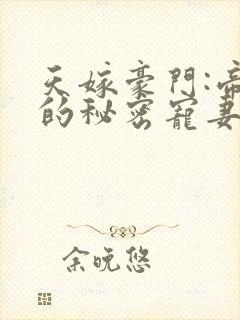 天嫁豪門:帝
的秘密寵妻
余晚悠